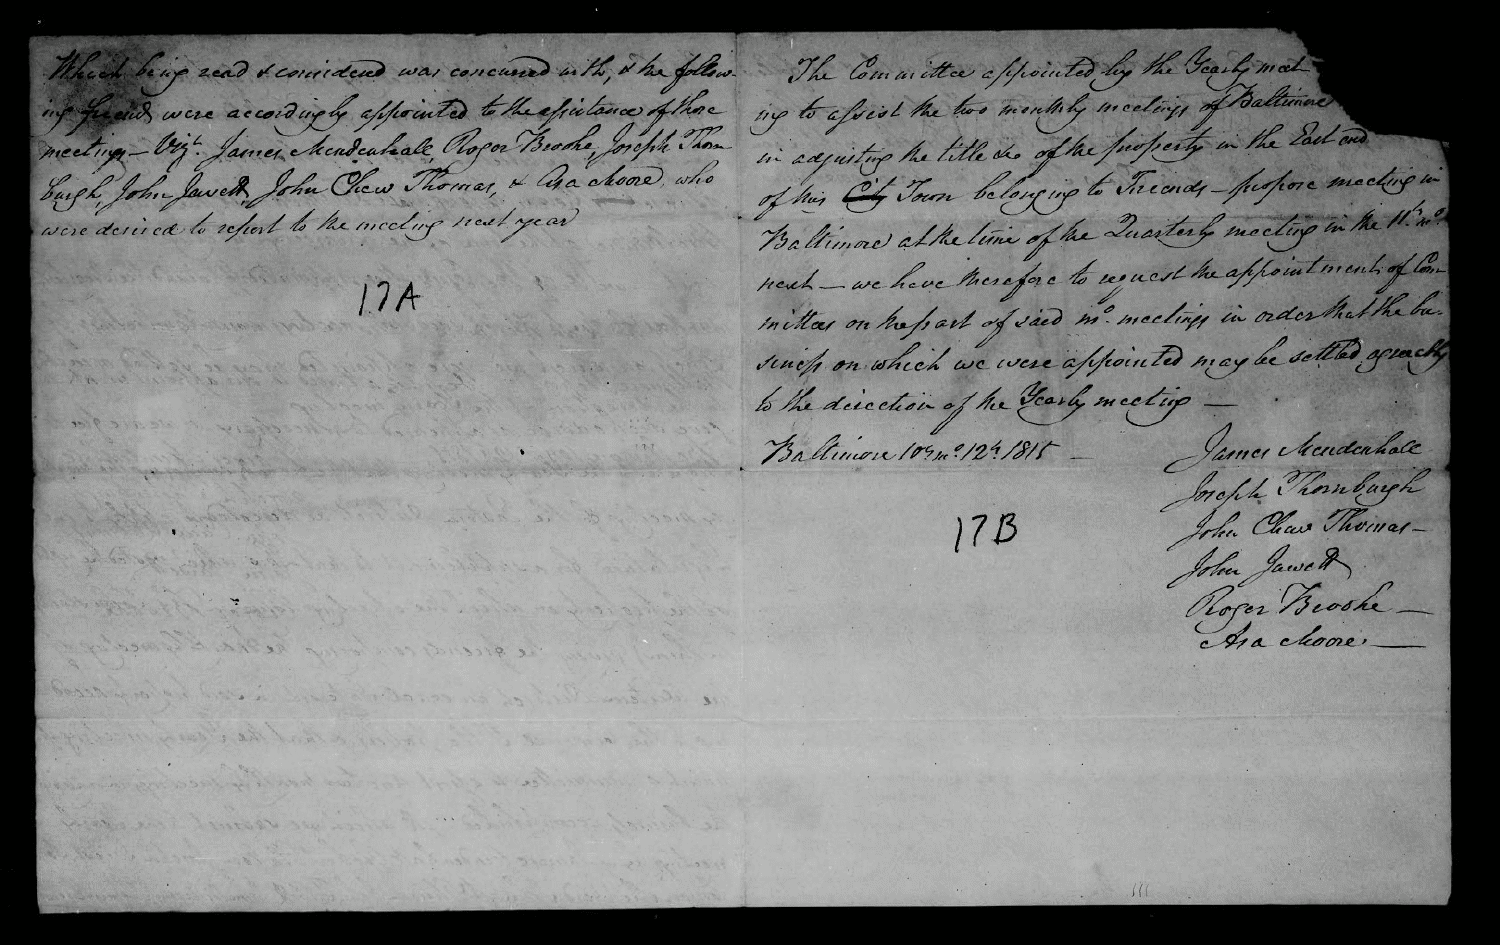 Which being read & considered was concurred with, & the follow-
ing friends were accordingly appointed to the assistance of those
meetings – Vizt. James Mendenhall, Roger Brooke, Joseph Thorn
burgh, John Jewett, John Chew Thomas, & Asa Moore, who
were desired to report to the meeting next year
17A
The Committee appointed by the Yearly meet-
ing to assist the two monthly meetings of Baltimore
in adjusting the title &c of the property in the East end
of this City Town belonging to Friends – propose meeting in
Baltimore at the time of the Quarterly meeting in the 11th mo.
next – we have therefore to request the appointment of Com-
mittees on the part of said mo. meetings in order that the bu-
siness on which we were appointed may be settled agreeably
to the direction of the Yearly meeting –
Baltimore 10th mo. 12th 1815 –
James Mendenhall
Joseph Thornburgh
John Chew Thomas –
John Jewett
Roger Brooke –
Asa Moore –
17B